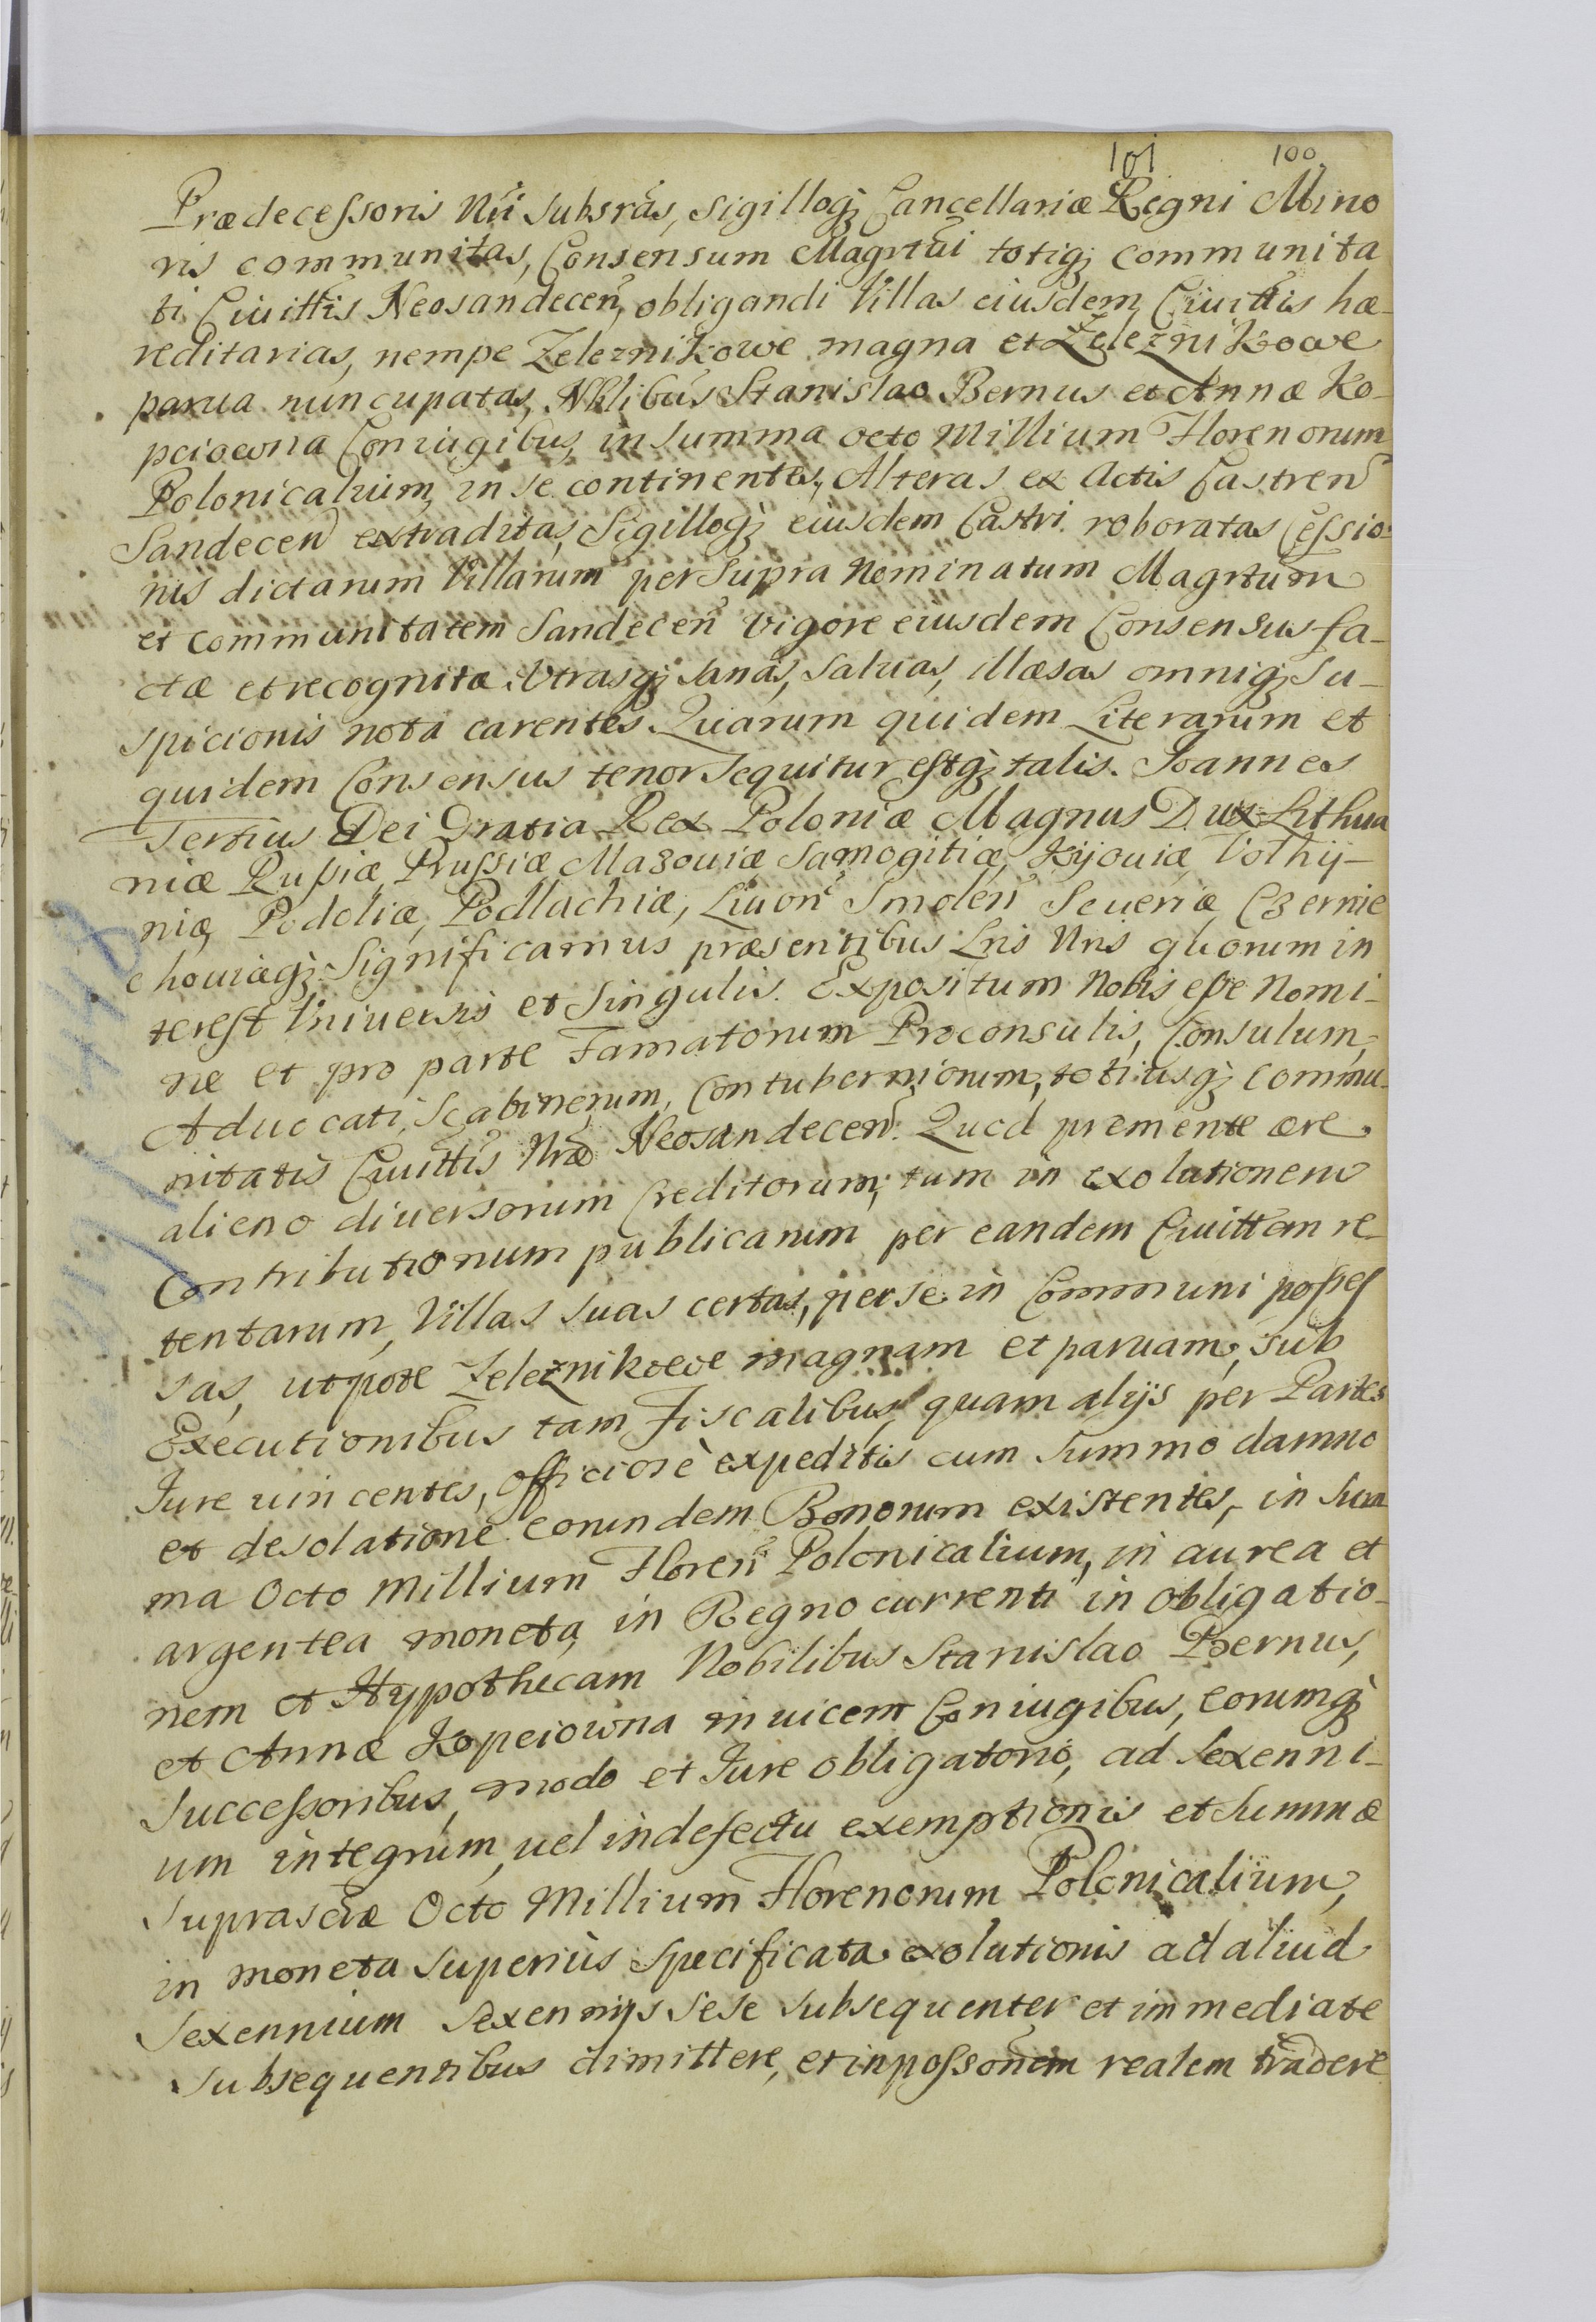 101 100
Prædecessoris Nri subsràs, sigillogʒ Cancellariæ Regni Mino
ris communitas, Consensum Magrtui totigʒ communita
ti Ciuittis Neosandecen̄, obligandi Villas eiusdem Ciuittis hæ-
reditarias, nempe Zeleznikowe magna et Zelezniḱowe
parua nuncupatas, Nblibus Stanislao Bernus et Annæ Ko-
pciowna Coniugibus, in summa octo Millium Florenorum
Polonicalium, in se continentes, Alteras ex Actis Castren̄
Sandecen̄ extraditas, Sigillogʒ eiusdem Castri roboratas Cessio-
nis dictarum Villarum per Supra Nominatum Magrtum
et communitatem Sandecen̄ vigore eiusdem Consensus fa-
ctæ et recognitæ. Vtrasgʒ sanas, saluas, illæsas omnigʒ su-
spicionis nota carentes. Quarum quidem Literarum et
quidem Consensus tenor sequitur estgʒ talis. Joannes
Tertius Dei Gratia Rex Poloniæ Magnus Dux Lithua
niæ Russiæ, Prussiæ, Mazouiæ, Samogitiæ, Kijouiæ, Volhij-
niæ, Podoliæ, Podlachiæ, Liuon̄ Smolen̄ Seueriæ, Czernie
chouiægʒ. Significamus præsentibus Lris Nris quorum in
terest Vniuersis et Singulis. Expositum Nobis esse Nomi-
ne et pro parte Famatorum Proconsulis, Consulum,
Aduocati, Scabinorum, Contuberniorum, totiusgʒ commu-
nitatis Ciuittis Nræ Neosandecen̄. Quod premente ære
alieno diuersorum Creditorum, tum in exolutionem
Contributionum publicarum per eandem Ciuittem re-
tentarum, Villas suas certas, per se in Communi posses
sas, utpote Zeleznikowe magnam et paruam, sub
Executionibus tam Fiscalibus, quam alijs per Partes
Jure uincentes, officiosè expeditis cum summo damno
et desolatione eorundem Bonorum existentes, in Sum
ma Octo Millium Floren̄ Polonicalium, in aurea et
argentea moneta, in Regno currenti in obligatio-
nem et Hypothecam Nobilibus Stanislao Bernus,
et Annæ Kopciowna inuicem Coniugibus, eorumgʒ
Successoribus, modo et Jure obligatorio, ad Sexenni-
um integrum, uel in defectu exemptionis et Summæ
suprascræ Octo Millium Florenorum Polonicalium,
in moneta superiùs specificata exolutionis ad aliud
Sexennium Sexennijs sese subsequenter et immediate
subsequentibus dimittere, et in possonem realem tradere